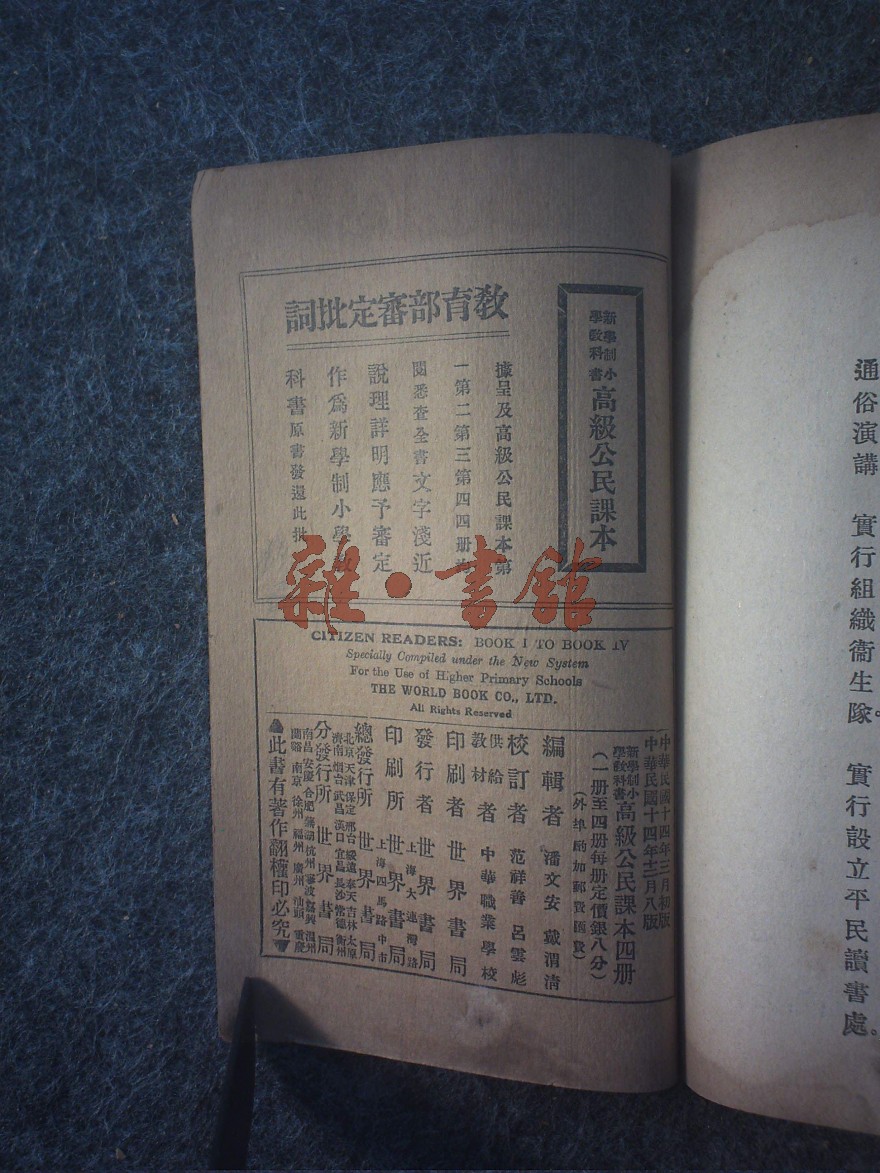 新學制小
學教科書
高級公民課本
教育部審定批詞
據呈及高級公民課本第
一第二第三第四四册
閱悉查全書文字淺近
說理詳明應予審定
作爲新學制小學
科書原書發還此批
雜·書館
CITIZEN READERS: BOOK I TO BOOK IV
Specially Compiled under the New System
For the Use of Higher Primary Schools
THE WORLD BOOK CO., LTD.
All Rights Reserved
中華民國十四年三月初版
中華民國十四年十二月八版
新學制小
學教科書
高級公民課本四册
(一册至四册每册定價銀八分)
(外埠酌加郵費匯費)
編輯者 潘文安 戴渭清
校訂者 范祥善 呂雲彪
供給教材者 中華職業學校
印刷者 世界書局
發行者 世界書局
印刷所 上海大連灣路 世界書局
總發行所 上海四馬路中市 世界書局
北京 天津 保定 邢台 綏遠 奉天 吉林 太原
濟南 烟台 武昌 漢口 宜昌 長沙 常德 衡州
分發行所 世界書局
南昌 安慶 合肥 蕪湖 杭州 寧波 嘉興 溫州
蘭谿 南京 徐州 福州 廣州 汕頭 重慶
此書有著作權翻印必究
通俗演講 實行組織衞生隊。 實行設立平民讀書處。